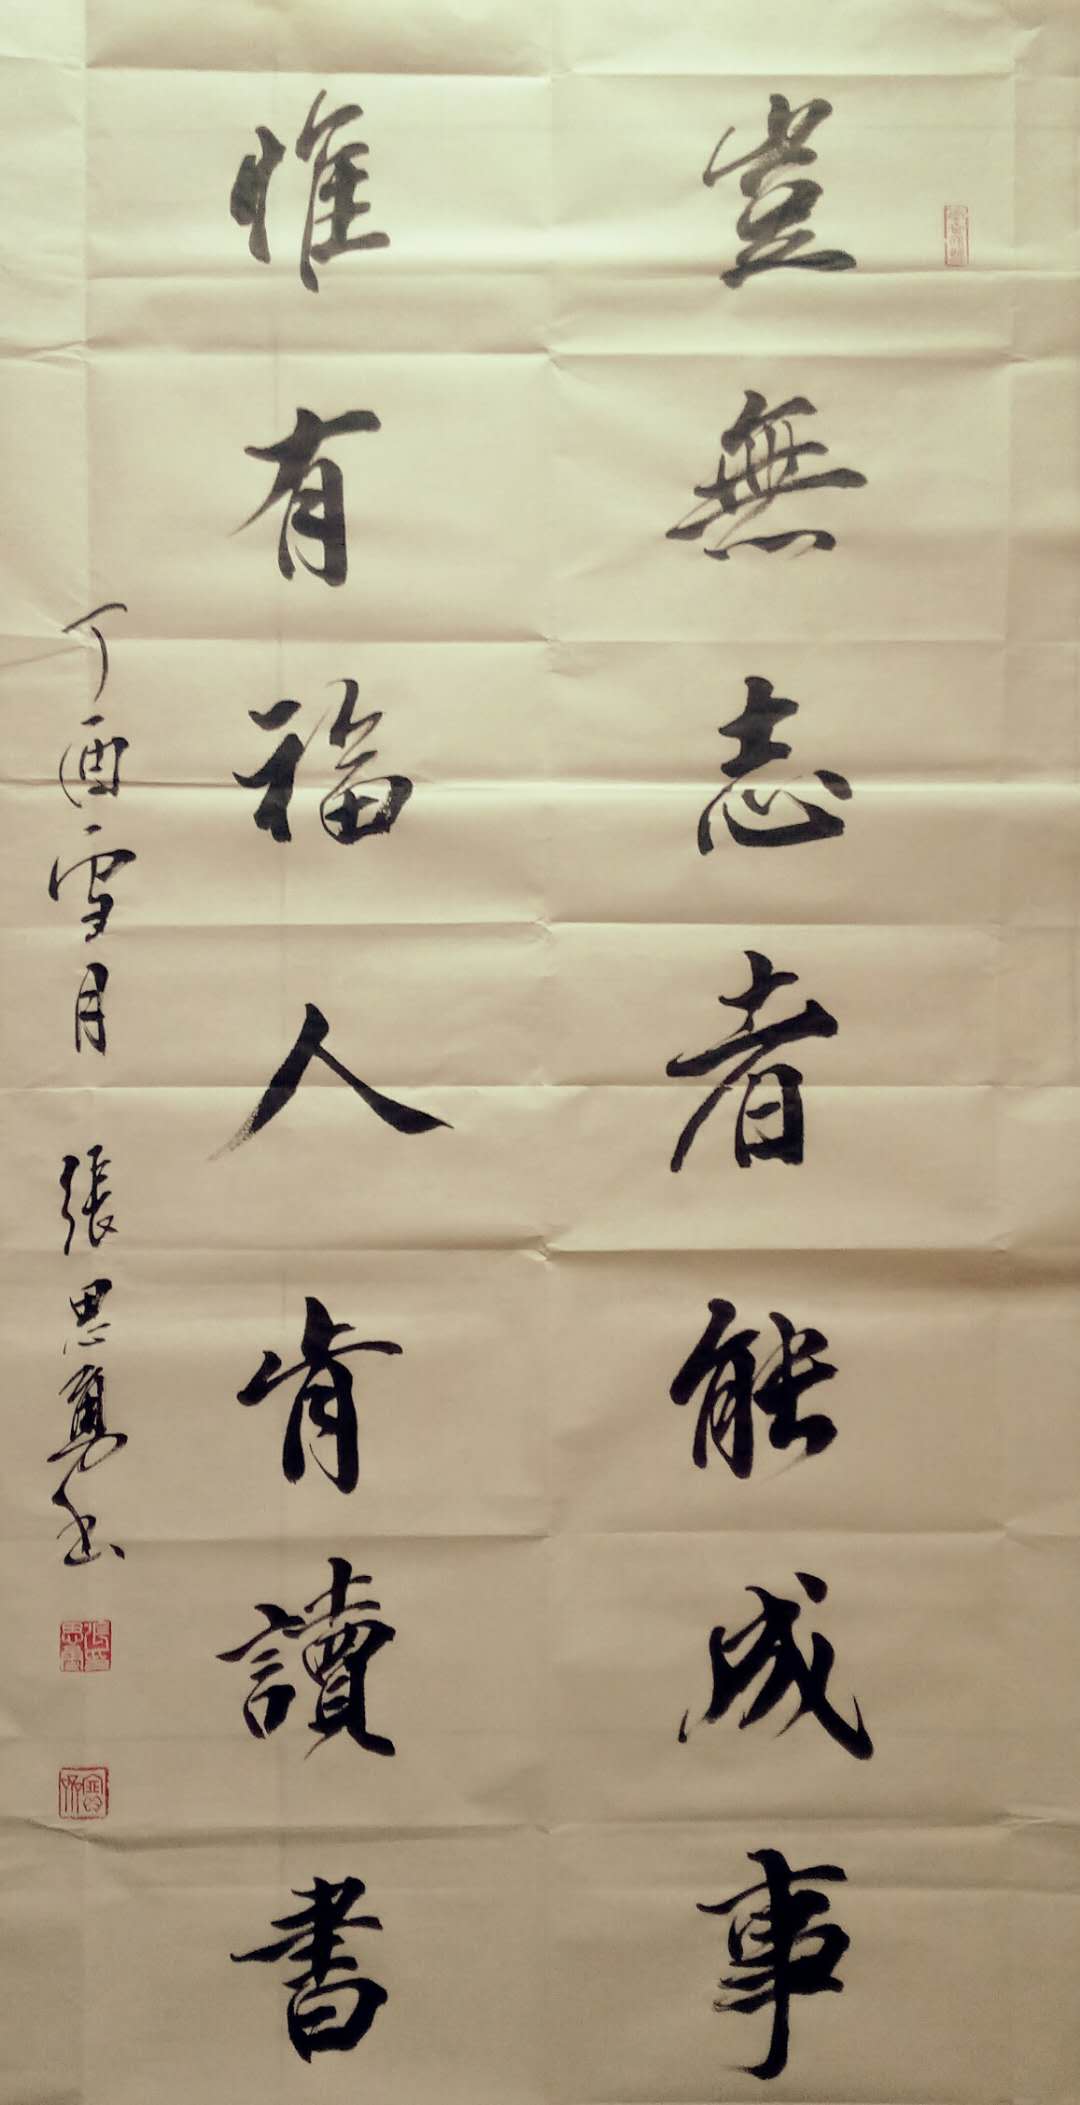 豈無志者能成事
惟有福人肯讀書
丁酉雪月 張思勇書